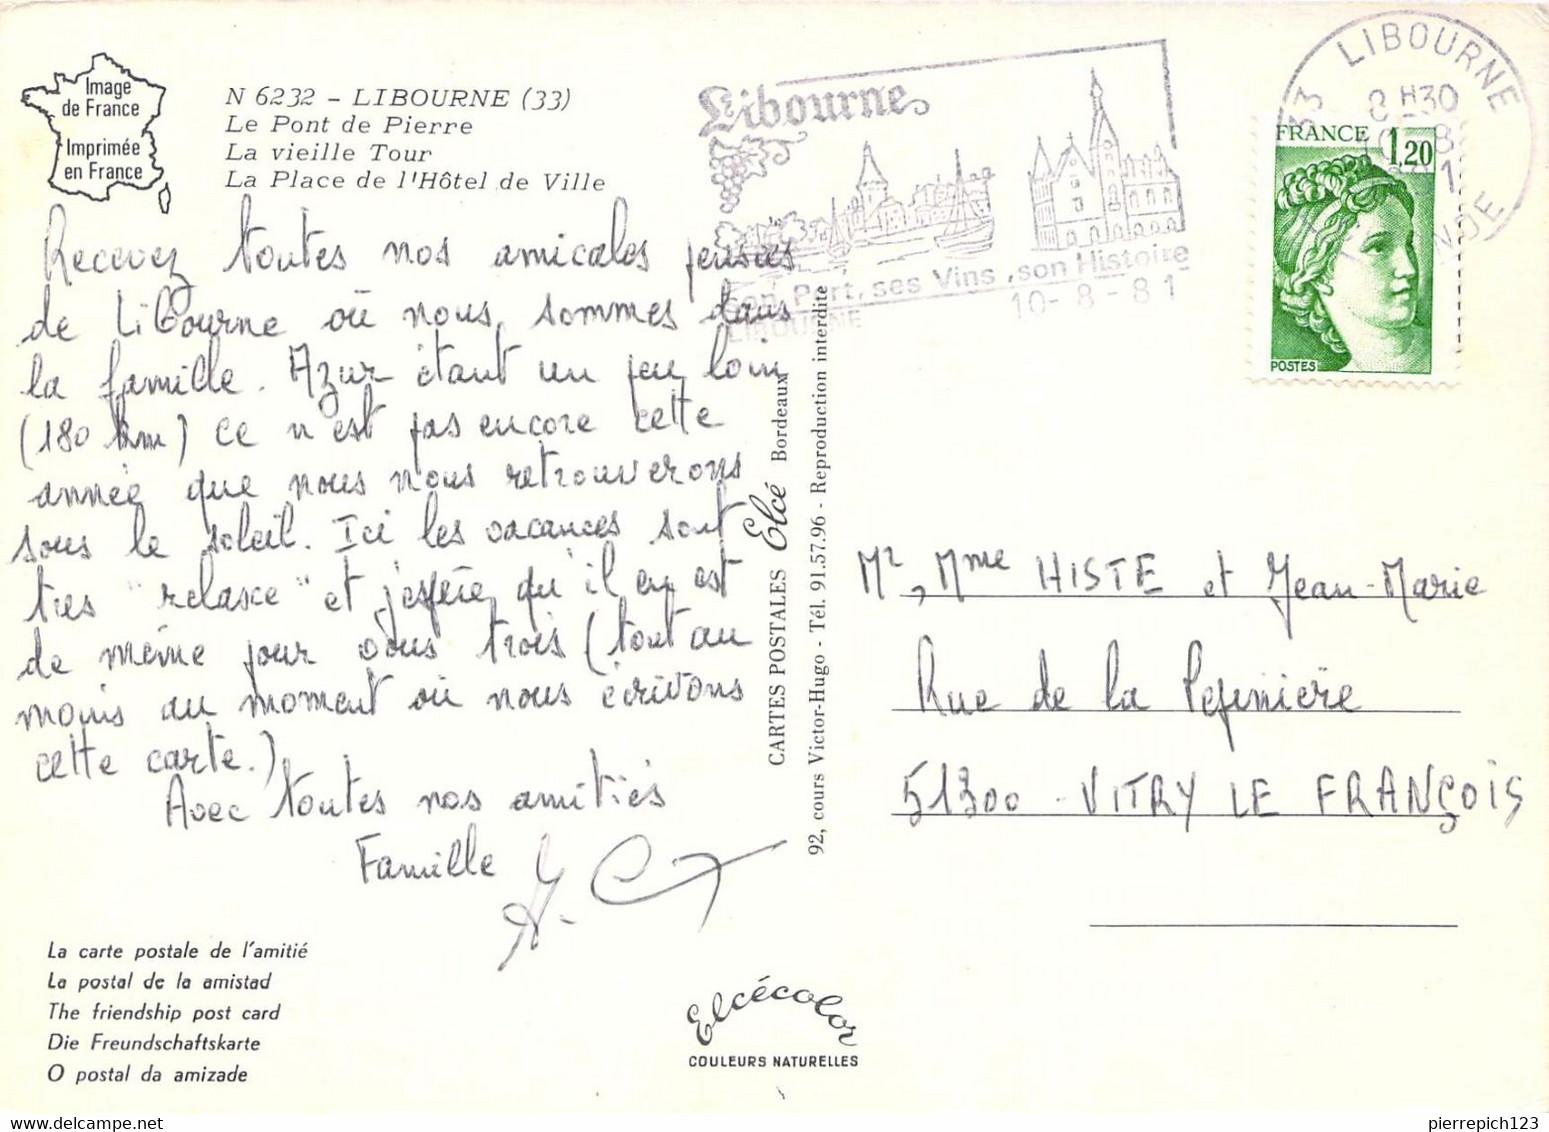 Image
de France
Imprimée
en France
N 6232 - LIBOURNE (33)
Le Pont de Pierre
La vieille Tour
La Place de l'Hôtel de Ville
Recevez toutes nos amicales pensées
de Libourne où nous sommes dans
la famille. Azur étant un peu loin
(180 km) ce n'est pas encore cette
année que nous nous retrouverons
sous le soleil. Ici les vacances sont
très "relaxe" et j'espère qu'il en est
de même pour vous trois (tout au
moins au moment où nous écrivons
cette carte.)
Avec toutes nos amitiés
Famille
La carte postale de l'amitié
La postal de la amistad
The friendship post card
Die Freundschaftskarte
O postal da amizade
Elcécolor
COULEURS NATURELLES
CARTES POSTALES Elcé Bordeaux
92, cours Victor-Hugo - Tél. 91.57.96 - Reproduction interdite
Libourne
son Port, ses Vins, son Histoire
LIBOURNE 10-8-81
33 LIBOURNE
8H30
FRANCE 1,20
POSTES
Mr, Mme HISTE et Jean-Marie
Rue de la Pépinière
51300 - VITRY LE FRANÇOIS
pierrepich123